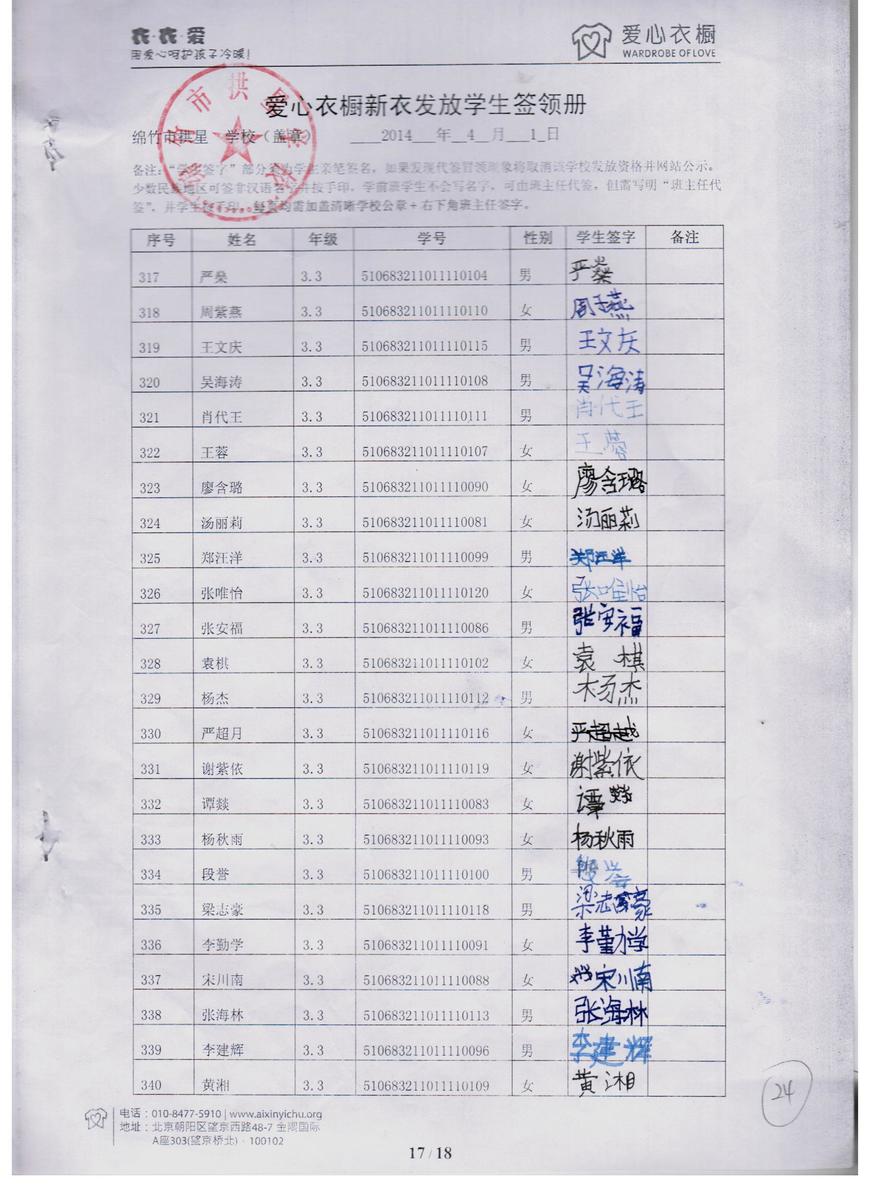 衣·衣·爱
用爱心呵护孩子冷暖!
爱心衣橱
WARDROBE OF LOVE
爱心衣橱新衣发放学生签领册
绵竹市拱星 学校(盖章) 2014 年 4 月 1 日
备注:“学生签字”部分须为学生亲笔签名,如果发现代签冒领现象将取消该学校发放资格并网站公示。
少数民族地区可签非汉语名字并按手印,学前班学生不会写名字,可由班主任代签,但需写明“班主任代
签”,并学生按手印。每页均需加盖清晰学校公章+右下角班主任签字。
序号 姓名 年级 学号 性别 学生签字 备注
317 严燊 3.3 510683211011110104 男 严燊
318 周紫燕 3.3 510683211011110110 女 周子燕
319 王文庆 3.3 510683211011110115 男 王文庆
320 吴海涛 3.3 510683211011110108 男 吴海涛
321 肖代王 3.3 510683211011110111 男 肖代王
322 王蓉 3.3 510683211011110107 女 王蓉
323 廖含璐 3.3 510683211011110090 女 廖含璐
324 汤丽莉 3.3 510683211011110081 女 汤丽莉
325 郑汪洋 3.3 510683211011110099 男 郑汪洋
326 张唯怡 3.3 510683211011110120 女 张唯怡
327 张安福 3.3 510683211011110086 男 张安福
328 袁棋 3.3 510683211011110102 女 袁棋
329 杨杰 3.3 510683211011110112 男 杨杰
330 严超月 3.3 510683211011110116 女 严超越
331 谢紫依 3.3 510683211011110119 女 谢紫依
332 谭燚 3.3 510683211011110083 女 谭燚
333 杨秋雨 3.3 510683211011110093 女 杨秋雨
334 段誉 3.3 510683211011110100 男 段誉
335 梁志豪 3.3 510683211011110118 男 梁志豪
336 李勤学 3.3 510683211011110091 女 李勤学
337 宋川南 3.3 510683211011110088 女 宋川南
338 张海林 3.3 510683211011110113 男 张海林
339 李建辉 3.3 510683211011110096 男 李建辉
340 黄湘 3.3 510683211011110109 女 黄湘
24
电话:010-8477-5910 | www.aixinyichu.org
地址:北京朝阳区望京西路48-7 金隅国际
A座303(望京桥北)·100102
17 / 18